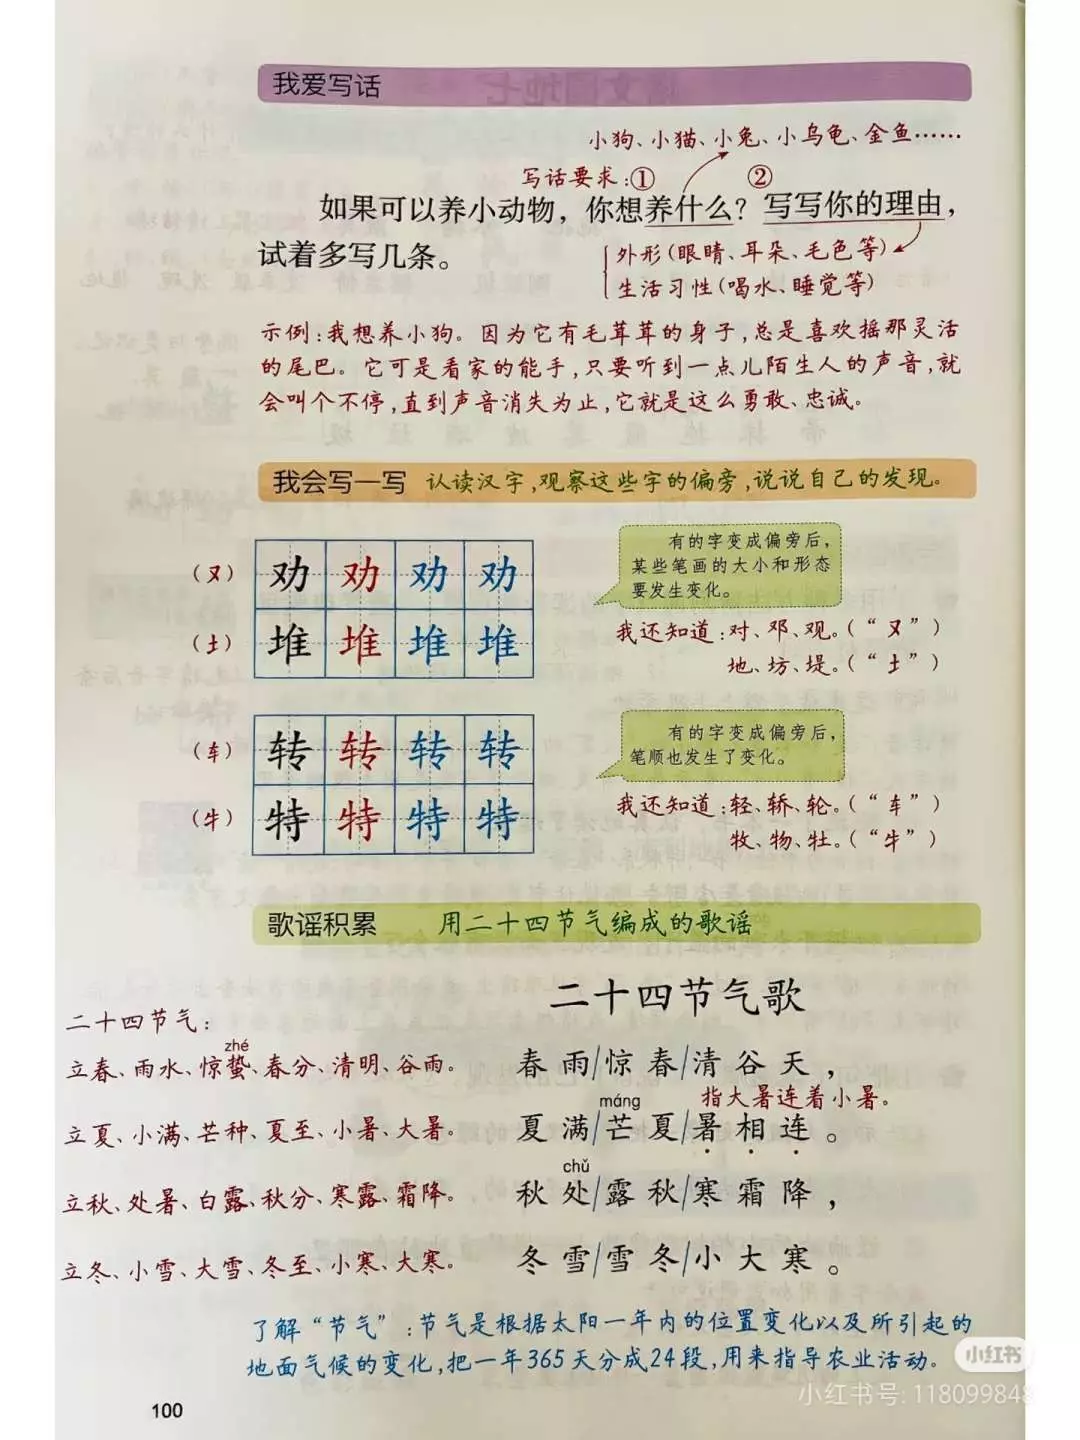 我爱写话
小狗、小猫、小兔、小乌龟、金鱼……
写话要求:① ②
如果可以养小动物，你想养什么？写写你的理由，
试着多写几条。
外形(眼睛、耳朵、毛色等)
生活习性(喝水、睡觉等)
示例:我想养小狗。因为它有毛茸茸的身子,总是喜欢摇那灵活
的尾巴。它可是看家的能手,只要听到一点儿陌生人的声音,就
会叫个不停,直到声音消失为止,它就是这么勇敢、忠诚。
我会写一写 认读汉字,观察这些字的偏旁,说说自己的发现。
(又) 劝 劝 劝 劝
(土) 堆 堆 堆 堆
有的字变成偏旁后，
某些笔画的大小和形态
要发生变化。
我还知道:对、邓、观。(“又”)
地、坊、堤。(“土”)
(车) 转 转 转 转
(牛) 特 特 特 特
有的字变成偏旁后，
笔顺也发生了变化。
我还知道:轻、轿、轮。(“车”)
牧、物、牡。(“牛”)
歌谣积累 用二十四节气编成的歌谣
二十四节气歌
二十四节气:
zhé
立春、雨水、惊蛰、春分、清明、谷雨。
立夏、小满、芒种、夏至、小暑、大暑。
立秋、处暑、白露、秋分、寒露、霜降。
立冬、小雪、大雪、冬至、小寒、大寒。
春雨/惊春/清谷天，
máng 指大暑连着小暑。
夏满/芒夏/暑相连。
chǔ
秋处/露秋/寒霜降，
冬雪/雪冬/小大寒。
了解“节气”:节气是根据太阳一年内的位置变化以及所引起的
地面气候的变化,把一年365天分成24段,用来指导农业活动.
小红书
小红书号: 118099848
100